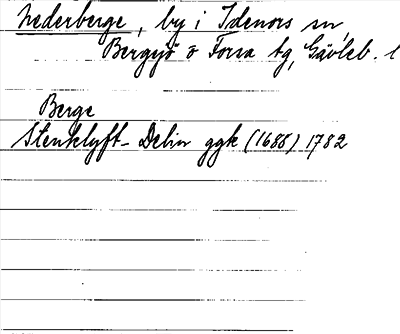 Nederberge, by i Idenors sn,
Bergsjö o Forsa tg, Gävleb. l
Berge
Stenklyft - Delin ggk (1688) 1782